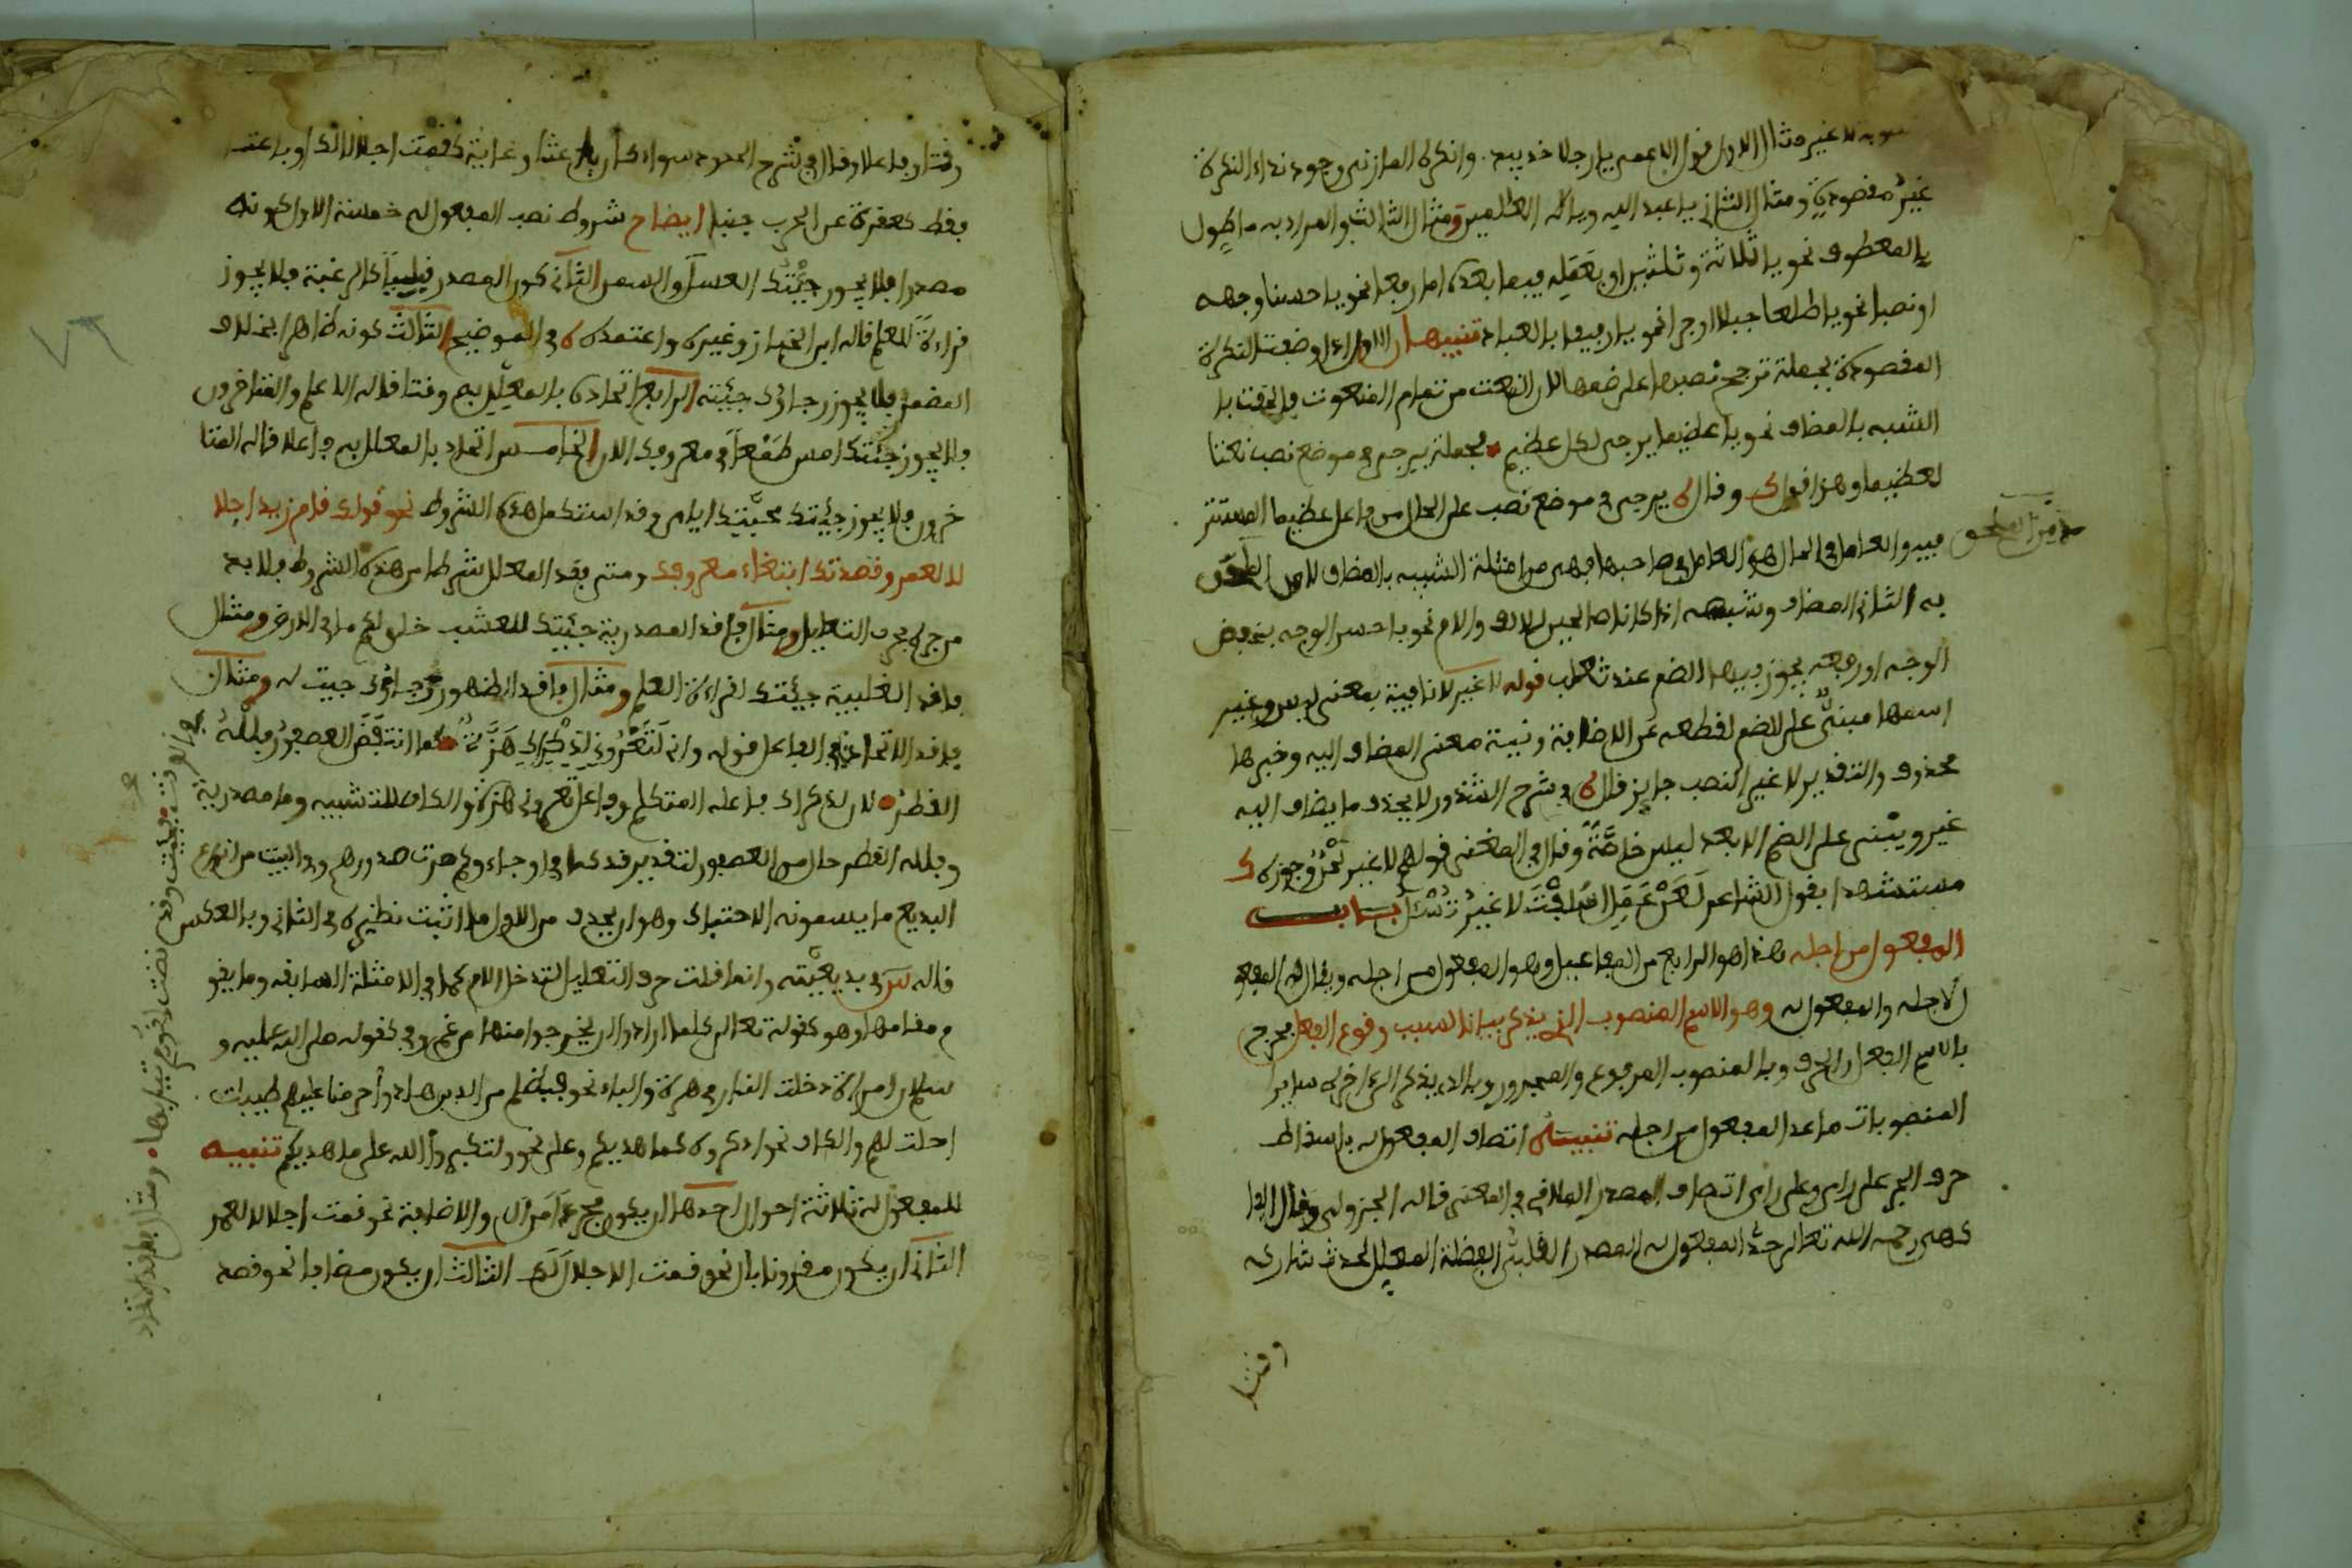 منصوبة لا غير مثال الاول قول الاعمى يا رجلا خذ بيدي وانكر المازني وجود نداء النكرة
غير مقصودة ومثال الثاني يا عبد الله ويا اله العلمين ومثال الثالث والمراد به ما طول
بالمعطوف نحو يا ثلاثة وثلثين او بعمله فيما بعده اما رفعا نحو يا حسنا وجهه
او نصبا نحو يا طالعا جبلا او جرا نحو يا رفيقا بالعباد تنبيهان الاول اذا وصفت النكرة
المقصودة بجملة ترجح نصبها على ضمها لان النعت من تمام المنعوت فالحقت با
لشبه بالمضاف نحو يا عظيما يرجى لكل عظيم فجملة يرجى في موضع نصب نعتا
لعظيما وهذا قول ك وقال يرجى في موضع نصب على الحال من فاعل عظيما المستتر
فيه والعامل في الحال هو العامل في صاحبها فهي من امثلة الشبيه بالمضاف لا من الملحق
به الثاني المضاف وشبهه اذا كانا صالحين للالف والام نحو يا حسن الوجه بخفض
الوجه او رفعه يجوز فيهما الضم عند ثعلب قوله لا غير لا نافية بمعنى ليس وغير
اسمها مبني على الضم لقطعه عن الاضافة ونية معنى المضاف اليه وخبرها
محذوف والتقدير لا غير النصب جايز قال في شرح الشذور لا يحذف ما يضاف اليه
غير ويبنى على الضم الا بعد ليس خاصة وقال في المغني قولهم لا غير لحن وجوزه ك
مستشهدا بقول الشاعر لعن عمل اسلفت لا غير تسئل باب
المفعول من اجله هذا هو الرابع من المفاعيل وهو المفعول من اجله ويقال له المفعو
لاجله والمفعول له وهو الاسم المنصوب الذي يذكر بيانا لسبب وقوع الفعل فخرج
بالاسم الفعل والحرف وبالمنصوب المرفوع والمجرور وبالذي يذكر الى اخره ساير
المنصوبات ما عدا المفعول من اجله تنبيه انتصاب المفعول له باسقاط
حرف الجر على راي وعلى راي انتصاب المصدر الملاقي في المعنى قاله الجزولي وقال الفا
كهي رحمه الله تعالى حد المفعول له المصدر القلبي الفضلة المعلل لحدث شاركه
وقتا
وقتا وفاعلا وقال في شرح الحدود سواء كان باعثا وغاية كقمت اجلالا لك او باعثا
فقط كقعدت عن الحرب جبنا ايضاح شروط نصب المفعول له خمسة الاول كونه
مصدرا فلا يجوز جئتك العسل والسمن الثاني كون المصدر قلبيا كالرغبة فلا يجوز
قراءة للعلم قاله ابن الخباز وغيره واعتمده في التوضيح الثالث كونه ظاهرا بخلاف
المضمر فلا يجوز رجائك جئته الرابع اتحاده بالمعلل به وقتا قاله الاعلم والمتاخرون
فلا يجوز جئتك امس طمعا في معروفك الان الخامس اتحاده بالمعلل به فاعلا قاله المتا
خرون فلا يجوز جئتك محبتك اياي وقد استكمل هذه الشروط نحو قولك قام زيد اجلا
لا لعمرو قصدتك ابتغاء معروفك ومتى فقد المعلل شرطا من هذه الشروط فلا بد
من جره بحرف التعليل ومثال فاقد المصدرية جئتك للعشب خلق لكم ما في الارض ومثال
فاقد القلبية جئتك لقراءة العلم ومثال فاقد الظهور رجاؤك جيت له ومثال
فاقد الاتحاد في الفاعل قوله واني لتعروني لذكراك هزة كما انتفض العصفور بلله
القطر لان الذكرى فاعله المتكلم وفاعل تعروني هزة والكاف للتشبيه وما مصدرية
وبلله القطر حال من العصفور لتقدير قد كما في او جاءوكم حصرت صدورهم وفي البيت من انواع
البديع ما يسمونه الاحتباك وهو ان يحذف من الاول ما اثبت نظيره في الثاني وبالعكس
قاله س في بديعيته وانما قلت حرف التعليل لتدخل الام كما في الامثلة السابقه وما يقو
م مقامها وهو كقوله تعالى كلما ارادوا ان يخرجوا منها من غم وفي كقوله صلى الله عليه و
سلم ان امراة دخلت النار في هرة والباء نحو فبظلم من الذين هادوا حرمنا عليهم طيبات
احلت لهم والكاف نحو اذكروه كما هديكم وعلى نحو ولتكبروا الله على ما هديكم تنبيه
للمفعول له ثلاثة احوال احدها ان يكون مجردا من ال والاضافة نحو قمت اجلالا لعمر
الثاني ان يكون مقرونا بال نحو قمت الاجلال لك الثالث ان يكون مضافا نحو قصد
في الوقت فجيت وقد نضت لنوم ثيابها ومثال فاقد الاتحاد
٧٦